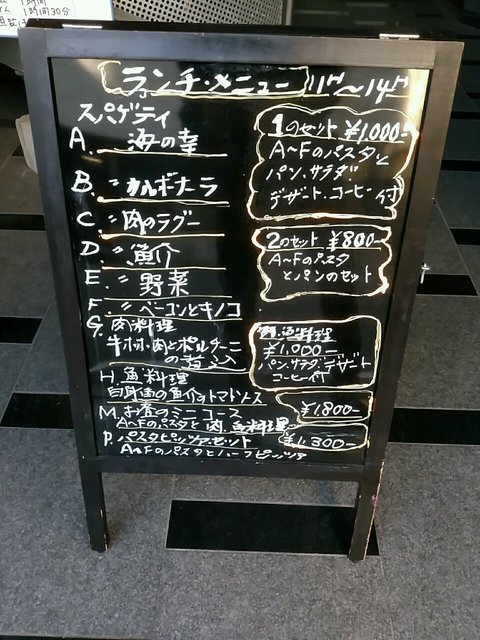 1時間
1時間30分
ランチ・メニュー 11H～14H
スパゲティ
A. 海の幸
B. 〃 カルボナーラ
C. 〃 肉のラグー
D. 〃 魚介
E. 〃 野菜
F. 〃 ベーコンとキノコ
G. 肉料理
牛ホホ肉とポルチーニ
の煮込
H. 魚料理
白身魚の魚介のトマトソース
M. お昼のミニコース
A~Fのパスタと肉、魚料理
P. パスタピッツァセット
A~Fのパスタとハーフピッツァ
1のセット ¥1,000-
A~Fのパスタと
パン、サラダ
デザート、コーヒー付
2のセット ¥800-
A~Fのパスタ
とパンのセット
肉、魚料理
¥1,000-
パン、サラダ、デザート
コーヒー付
¥1,800-
¥1,300-